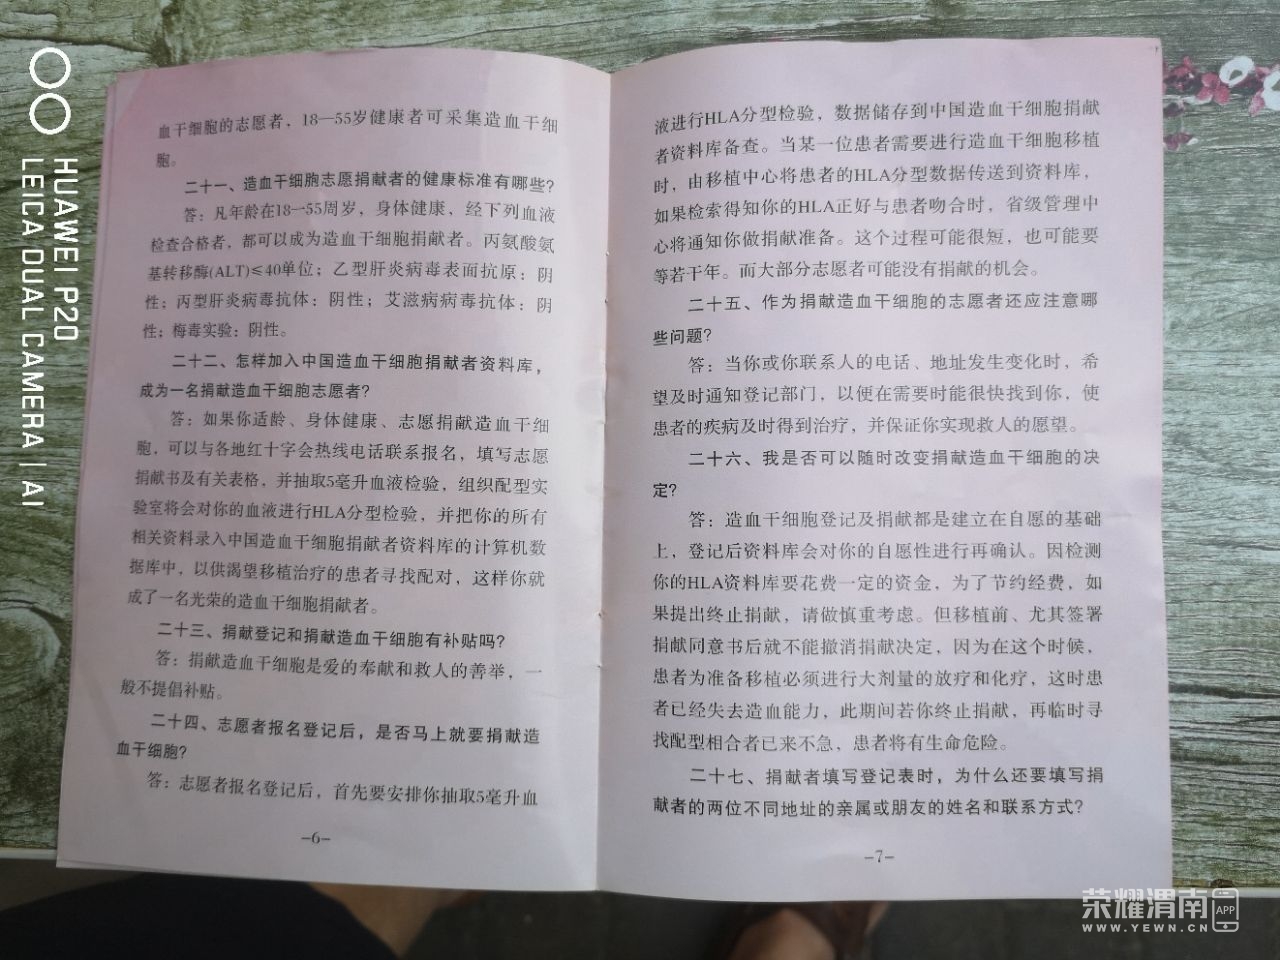 血干细胞的志愿者，18—55岁健康者可采集造血干细
胞。
二十一、造血干细胞志愿捐献者的健康标准有哪些？
答：凡年龄在18—55周岁，身体健康，经下列血液
检查合格者，都可以成为造血干细胞捐献者。丙氨酸氨
基转移酶(ALT)≤40单位；乙型肝炎病毒表面抗原：阴
性；丙型肝炎病毒抗体：阴性；艾滋病病毒抗体：阴
性；梅毒实验：阴性。
二十二、怎样加入中国造血干细胞捐献者资料库，
成为一名捐献造血干细胞志愿者？
答：如果你适龄、身体健康、志愿捐献造血干细
胞，可以与各地红十字会热线电话联系报名，填写志愿
捐献书及有关表格，并抽取5毫升血液检验，组织配型实
验室将会对你的血液进行HLA分型检验，并把你的所有
相关资料录入中国造血干细胞捐献者资料库的计算机数
据库中，以供渴望移植治疗的患者寻找配对，这样你就
成了一名光荣的造血干细胞捐献者。
二十三、捐献登记和捐献造血干细胞有补贴吗？
答：捐献造血干细胞是爱的奉献和救人的善举，一
般不提倡补贴。
二十四、志愿者报名登记后，是否马上就要捐献造
血干细胞？
答：志愿者报名登记后，首先要安排你抽取5毫升血
–6–
液进行HLA分型检验，数据储存到中国造血干细胞捐献
者资料库备查。当某一位患者需要进行造血干细胞移植
时，由移植中心将患者的HLA分型数据传送到资料库，
如果检索得知你的HLA正好与患者吻合时，省级管理中
心将通知你做捐献准备。这个过程可能很短，也可能要
等若干年。而大部分志愿者可能没有捐献的机会。
二十五、作为捐献造血干细胞的志愿者还应注意哪
些问题？
答：当你或你联系人的电话、地址发生变化时，希
望及时通知登记部门，以便在需要时能很快找到你，使
患者的疾病及时得到治疗，并保证你实现救人的愿望。
二十六、我是否可以随时改变捐献造血干细胞的决
定？
答：造血干细胞登记及捐献都是建立在自愿的基础
上，登记后资料库会对你的自愿性进行再确认。因检测
你的HLA资料库要花费一定的资金，为了节约经费，如
果提出终止捐献，请做慎重考虑。但移植前、尤其签署
捐献同意书后就不能撤消捐献决定，因为在这个时候，
患者为准备移植必须进行大剂量的放疗和化疗，这时患
者已经失去造血能力，此期间若你终止捐献，再临时寻
找配型相合者已来不急，患者将有生命危险。
二十七、捐献者填写登记表时，为什么还要填写捐
献者的两位不同地址的亲属或朋友的姓名和联系方式？
–7–
HUAWEI P20
LEICA DUAL CAMERA | AI
荣耀渭南 APP
WWW.YEWN.CN